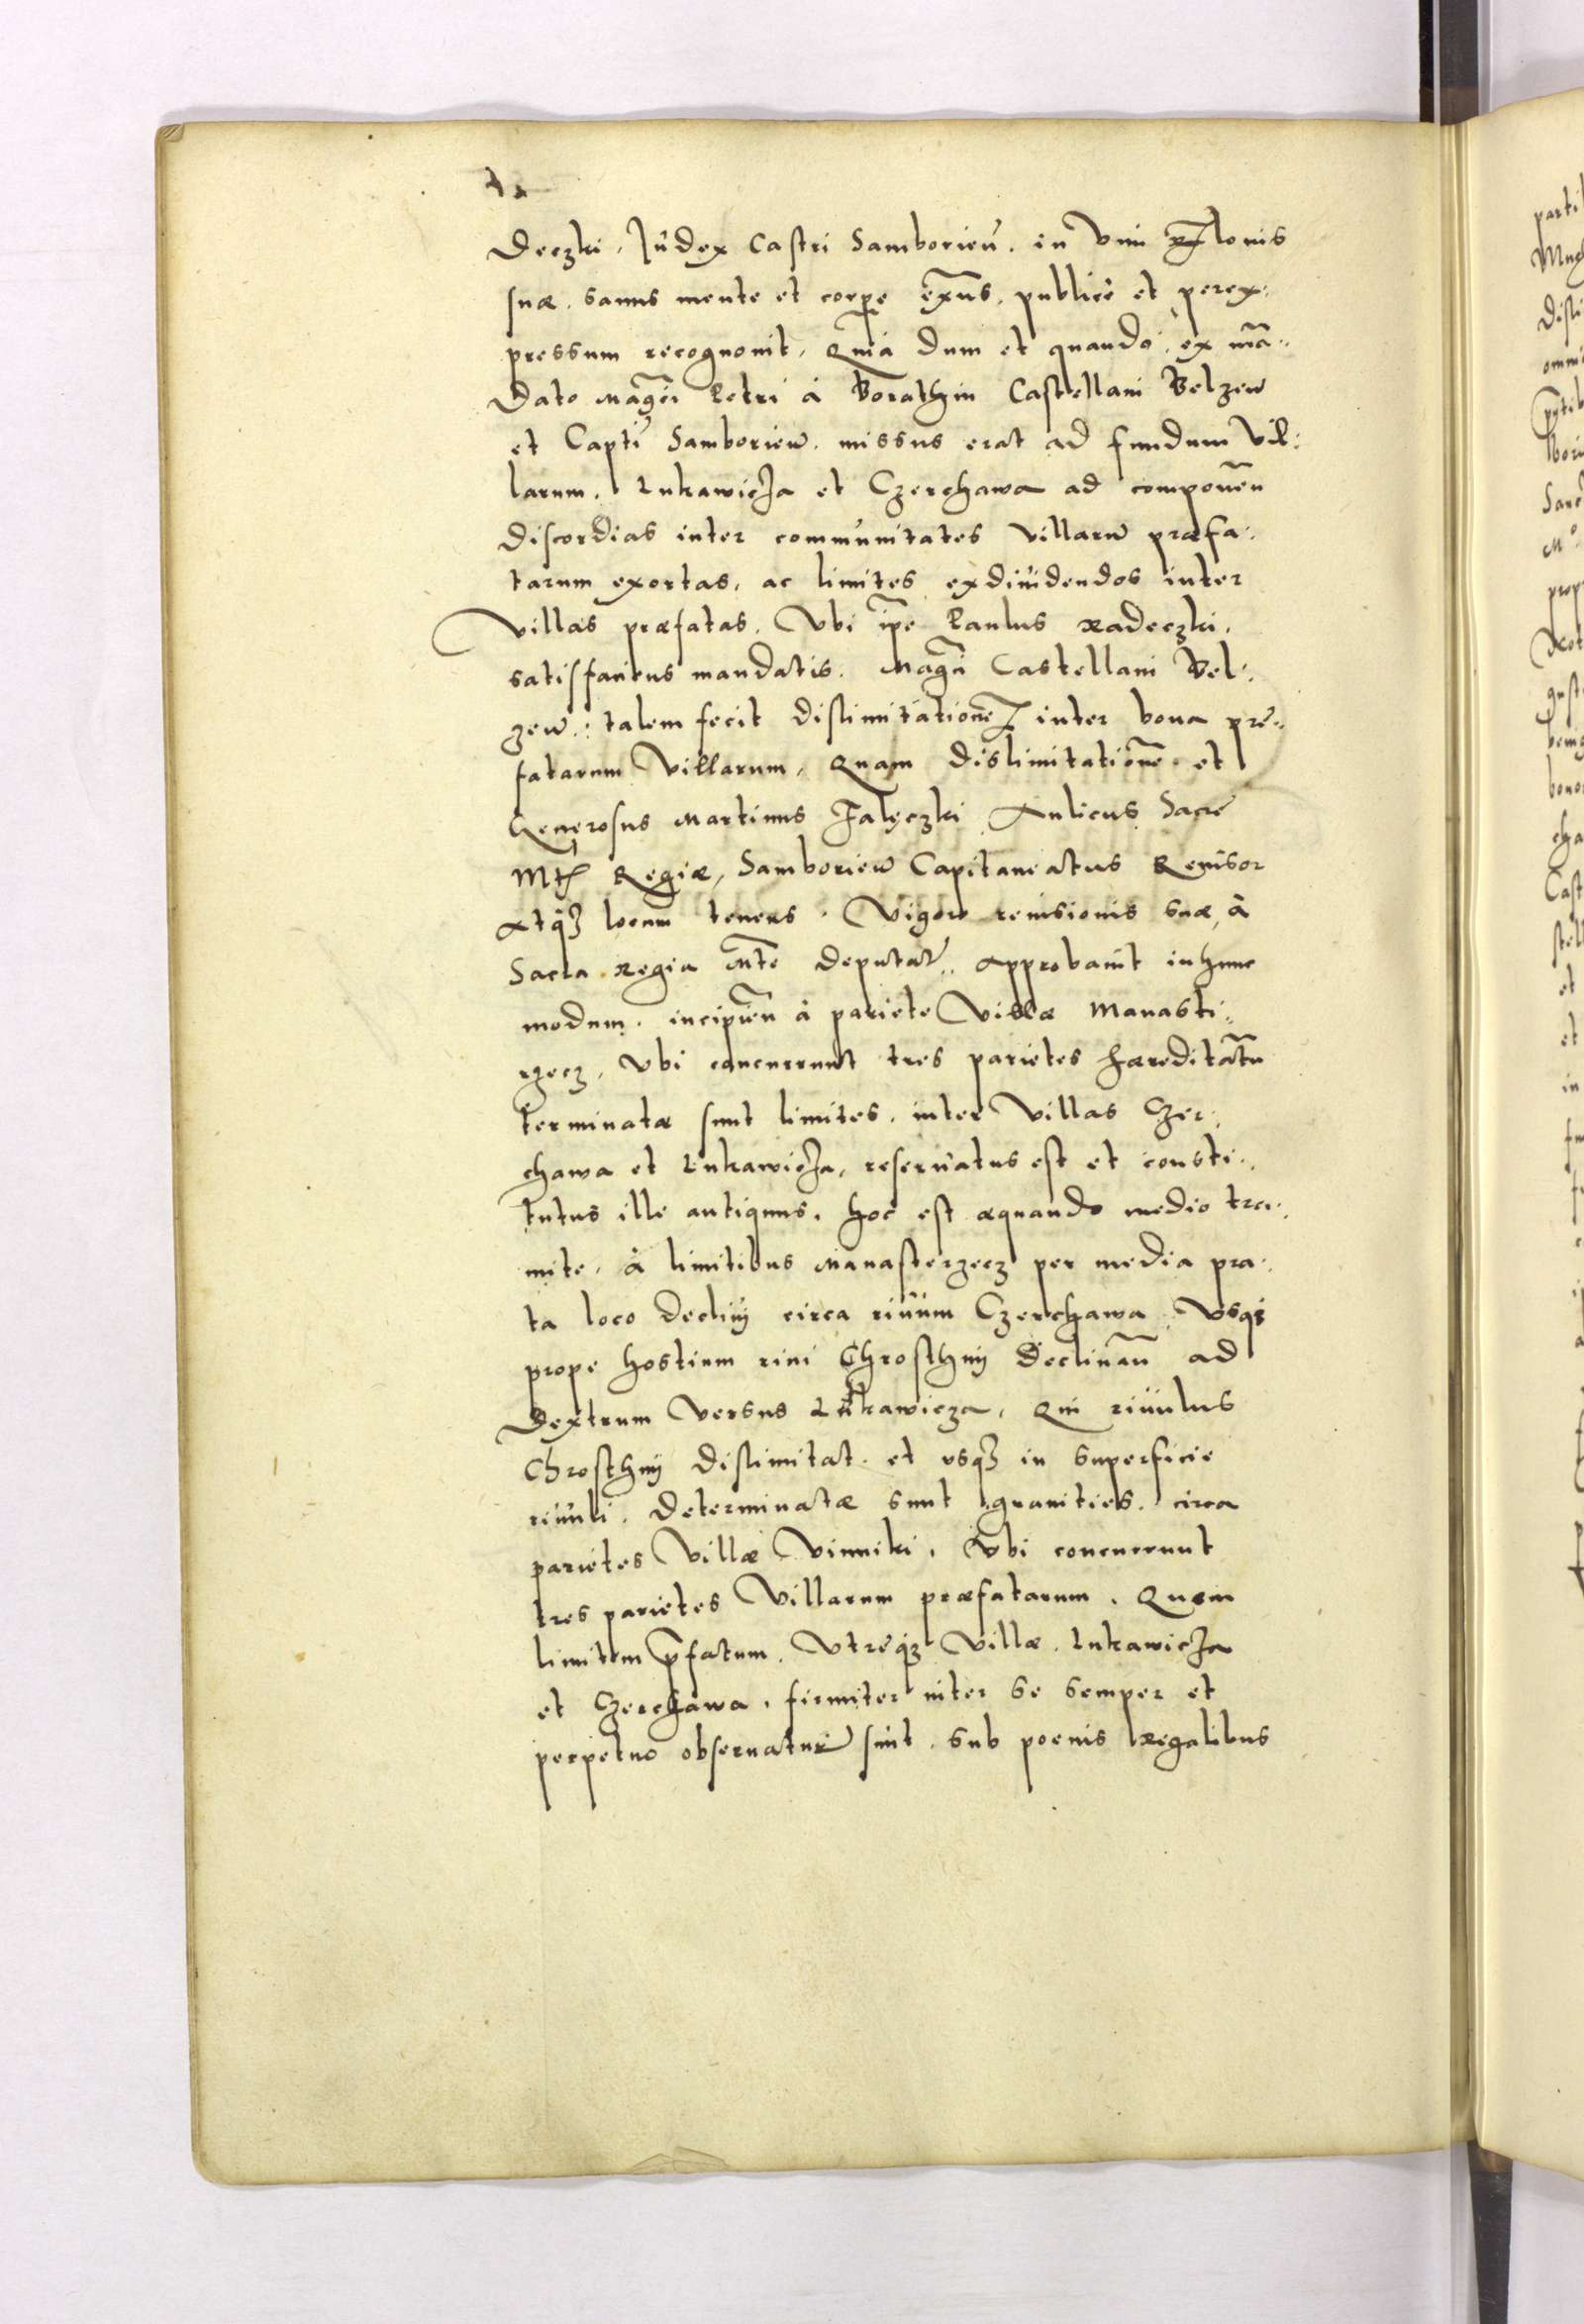 Deczki, Judex Castri Samborien̄. in Vim
suæ. sanus mente et corpe exn̄s, publice et perex:
pressum recognouit, Quia dum et quando, ex mā:
dato Magci Petri à Borathin Castellani Belzen̄
et Capti Samborien̄. missus erat ad fundum Vil:
larum, Lukawicza et Czerchawa ad componen̄
discordias inter communitates Villarū præfa:
tarum exortas, ac limites exdiuidendos inter
Villas præfatas, Vbi ipe Paulus Radeczki,
satisfaciens mandatis. Magci Castellani Bel:
zen̄: talem fecit dislimitationē inter bona præ:
fatarum Villarum, Quam dislimitationē et
Generosus Martinus Jaleczki Aulicus Sacræ
Mtis Regiæ, Samborien̄ Capitaneatus Reuisor
Atqʒ locum tenens. Vigore reuisionis suæ, à
Sacra Regia Mte deputat. Approbauit in hunc
modum. incipien̄ à pariete Villæ Manasti:
rzecz, Vbi concurrunt tres parietes hæreditatū
terminatæ sunt limites. inter Villas Czer:
chawa et Lukawicza, reseruatus est et consti:
tutus ille antiquus. hoc est æquando medio tra:
mite, à limitibus Manasterzecz per media pra:
ta loco decliui circa riuum Czerchawa Vsqʒ
prope hostium riui Chrosthnij declinan̄ ad
dextrum versus Lukawicza, Qui riuulus
Chrosthnij dislimitat. et vsqʒ in superficie
riuuli. determinatæ sunt granities. circa
parietes Villæ Vinniki, Vbi concurrunt
tres parietes Villarum præfatarum. Quem
limitem p̄fatum. Vtreqʒ Villæ. Lukawicza
et Czerchawa, firmiter inter se semper et
perpetuo obseruaturæ sint. sub poenis regalibus